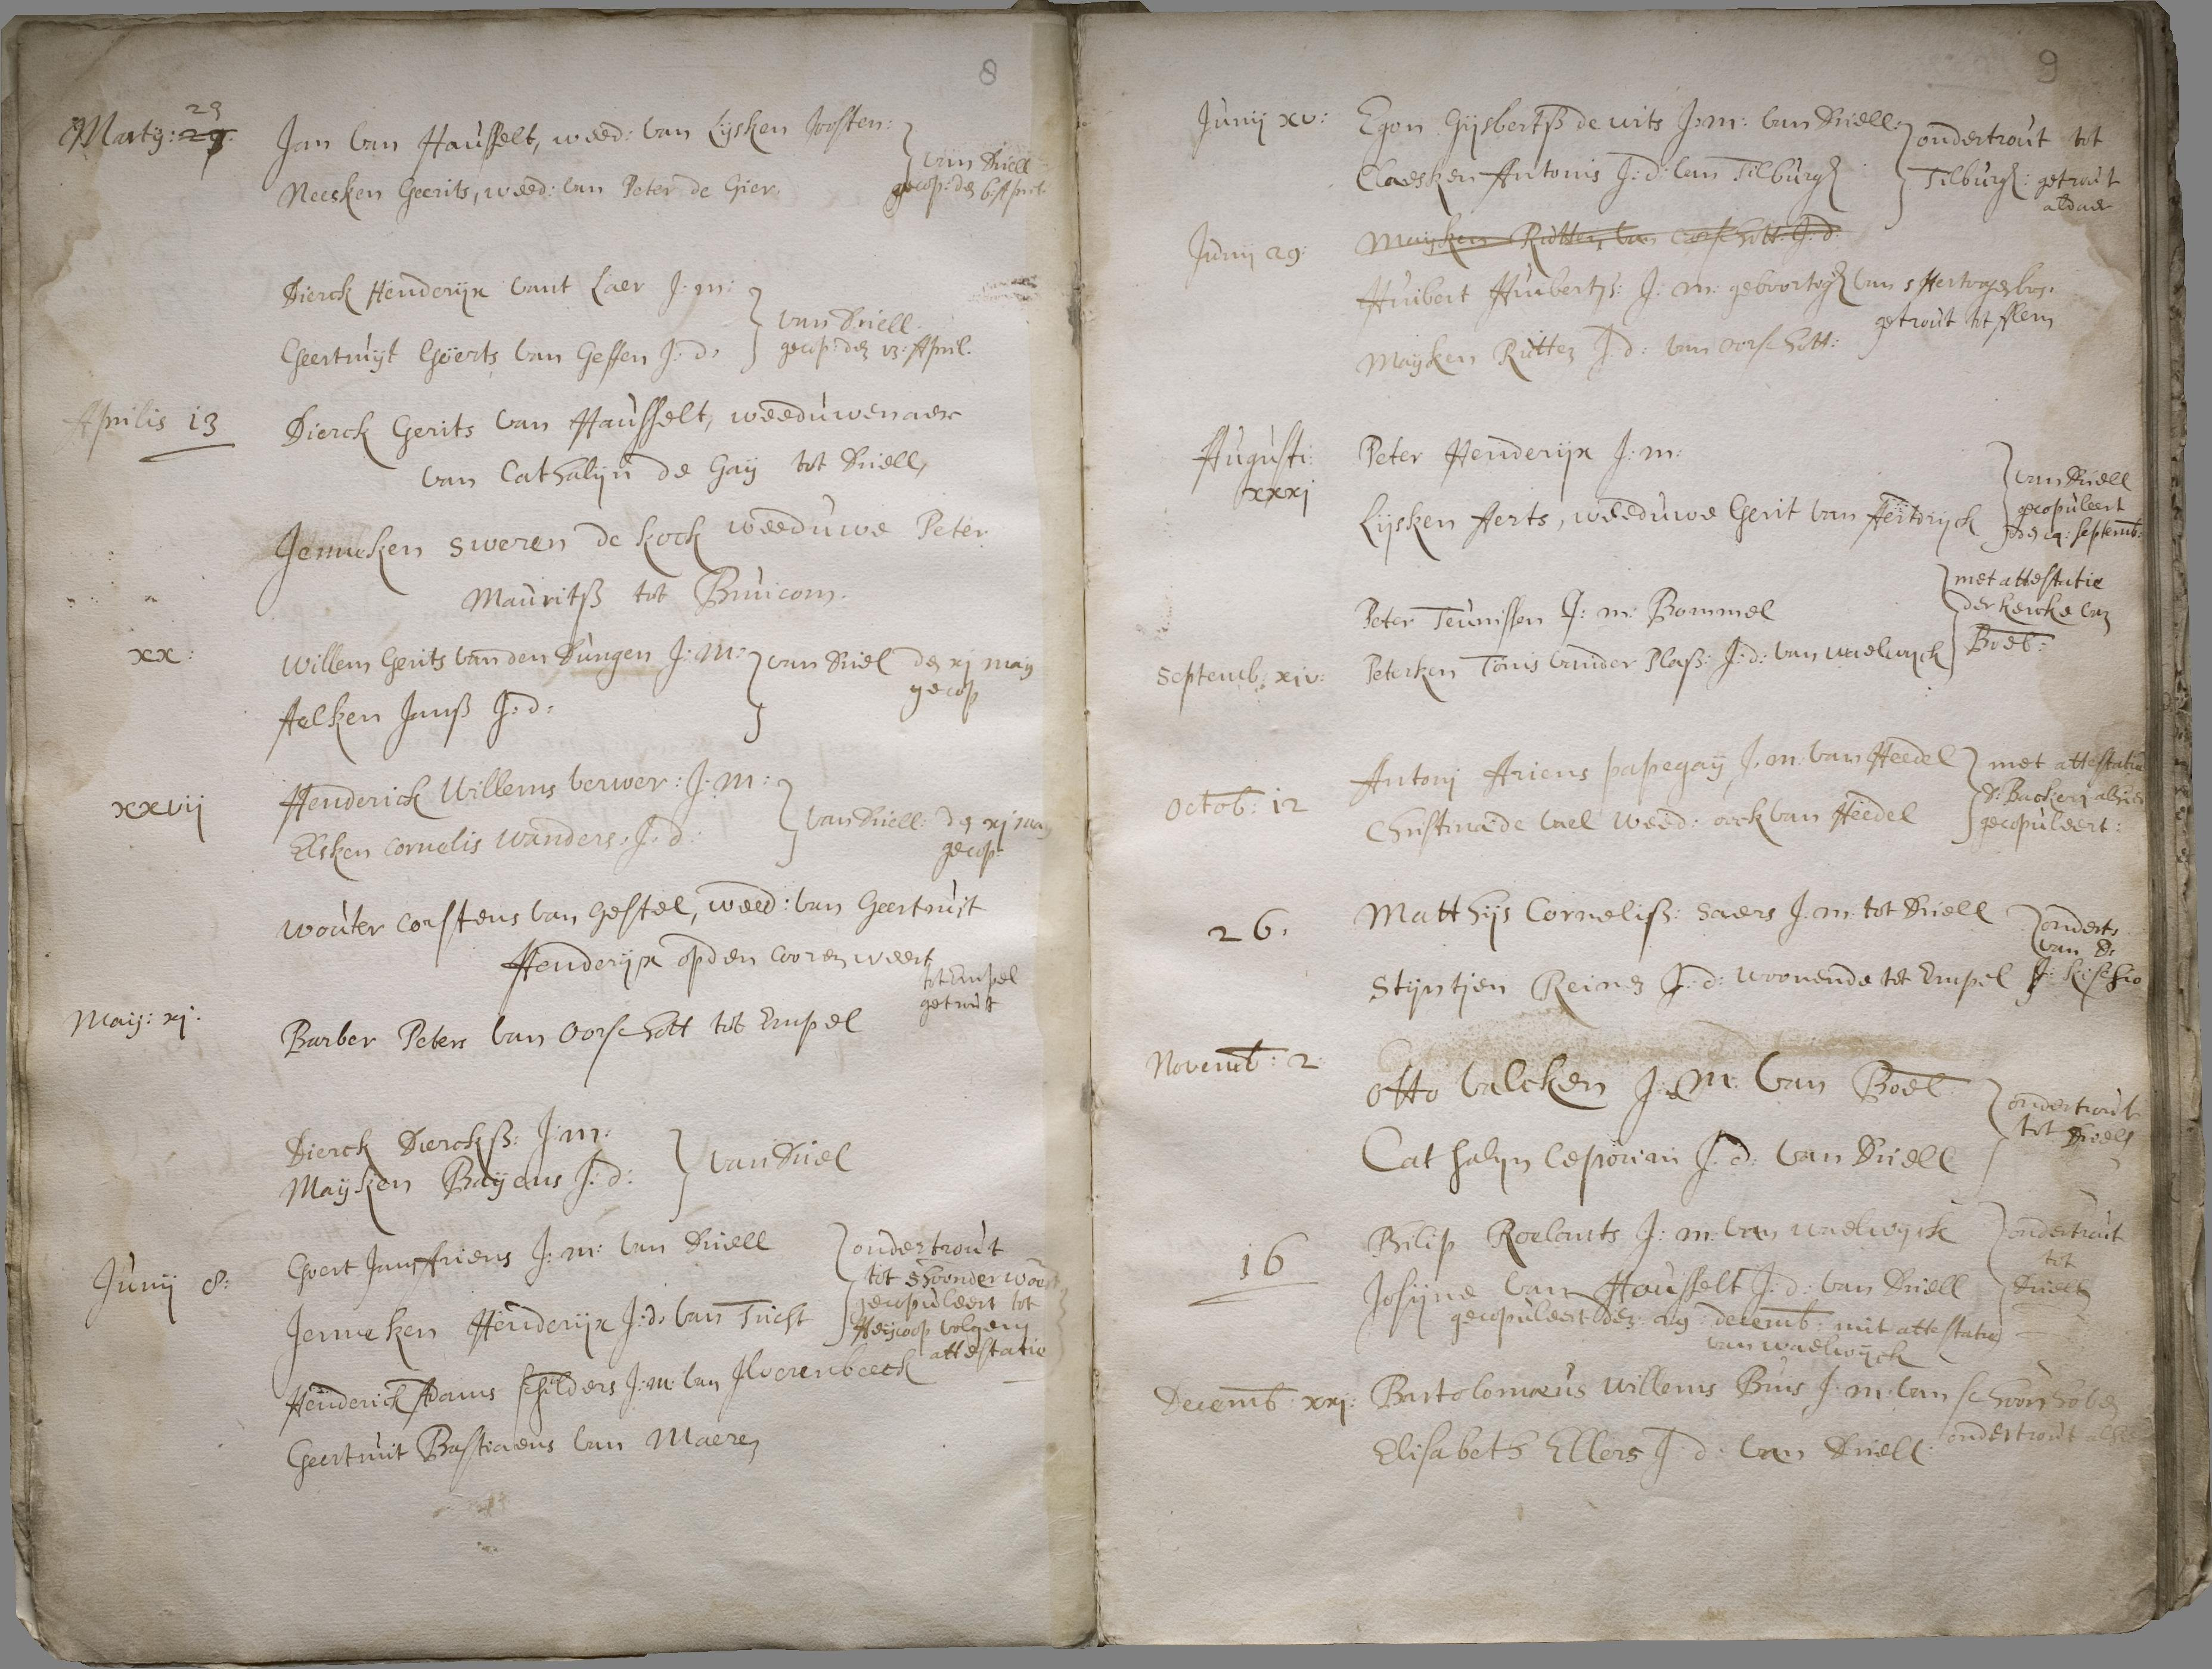 8
Martij: 29. 23
Jan van Hausselt, weed: van Lijsken Joosten:
Neesken Geerits, weed: van Peter de Gier
van Driell
gecop: den 6 April
Dierck Henderijx vant Laer J: m:
Geertruijt Goerts van Geffen J: d:
van Driell.
gecop: den 13: April.
Aprilis 13
Dierck Gerits van Hausselt, weeduwenaer
van Cathalijn de Gaij tot Driell,
Jenneken Sweren de kock weeduwe Peter
Mauritß tot Bruicom.
xx:
Willem Gerits van den Dungen J: m:
Aelken Janß J: d:
van Driel den xj maij
gecop
xxvij
Henderick Willems verwer: J: m:
Elsken Cornelis Wanders. J: d:
van Driell. den xj maij
gecop:
Wouter Corstens van Gestel, weed: van Geertruit
Henderijx op den Cooren weert
tot Empel
getrout
Maij: xj.
Barber Peters van Oorschott tot Empel
Dierck Dierckß: J: m:
Maijken Baijens J: d:
van Driel
Junij 8:
Goert Jans Ariens J: m: van Driell
Jenneken Henderijx J: d: van Tricht
ondertrout
tot
gecopuleert tot
Heijcoop volgens
attestatie
Henderick Adams schilders J: m: van Hverenbeeck
Geertruit Bastiaens van Maeren
9
Junij xv:
Egon Gijsbertß de wits J: m: van Driell:
Claesken Antonis J: d: van Tilburgh
ondertrout tot
Tilburgh: getrout
aldaer
Junij 29:
Maijken Rutten van Oorschott. J: d:
Huibert Huibertß: J: m: geboortigh van s Hertogenbos.
getrout tot
Maijken Rutten J: d: van Oorschott:
Augusti:
xxxj
Peter Henderijx J: m:
Lijsken Aerts, weeduwe Gerit van Hertdijck
van Driell
gecopuleert
den septemb:
Peter Teunissen J: m: Bommel
met attestatie
der kercke van
Boel:
Septemb: xiv:
Peterken Tonis vander Plaß: J: d: van Waelwijck
Octob: 12
Antonj Ariens papegaij J. m. van Heedel
Christina de vael weed: oock van Heedel
met attestatie
gecopuleert:
26.
Matthijs Corneliß: Saers J: m: tot Driell
Stijntjen Reinen J: d: woonende tot Empel
ondert:
van Ds
Novemb: 2
Otto Valcken J: m: van Boel
Cathalyn Leporiani J: d: van Driell
ondertrout
tot Driell
16
Pilip Roelants J: m: van Waelwijck
Josijne van Hausselt J: d: van Driell
ondertrout
tot
Driell
gecopuleert den 29: decemb: mit attestatie
van Waelwijck
Decemb: xxj:
Bartolomæus Willems Buis J: m: van schoonhoven
Elisabeth Ellers J: d: van Driell:
ondertrout